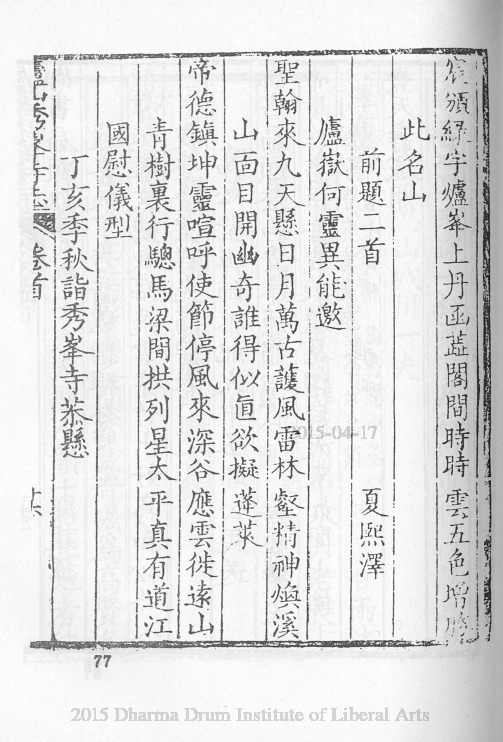 宸頒綠字爐峯上丹函蘂閣間時時雲五色增勝
此名山
前題二首 夏熙澤
廬嶽何靈異能邀
聖翰來九天懸日月萬古護風雷林壑精神煥溪
山面目開幽奇誰得似直欲擬蓬萊
帝德鎮坤靈喧呼使節停風來深谷應雲徙遠山
青樹裏行驄馬梁間拱列星太平真有道江
國慰儀型
丁亥季秋詣秀峯寺恭懸
廬山秀峯寺志 卷首
77
2015-04-17
2015 Dharma Drum Institute of Liberal Arts